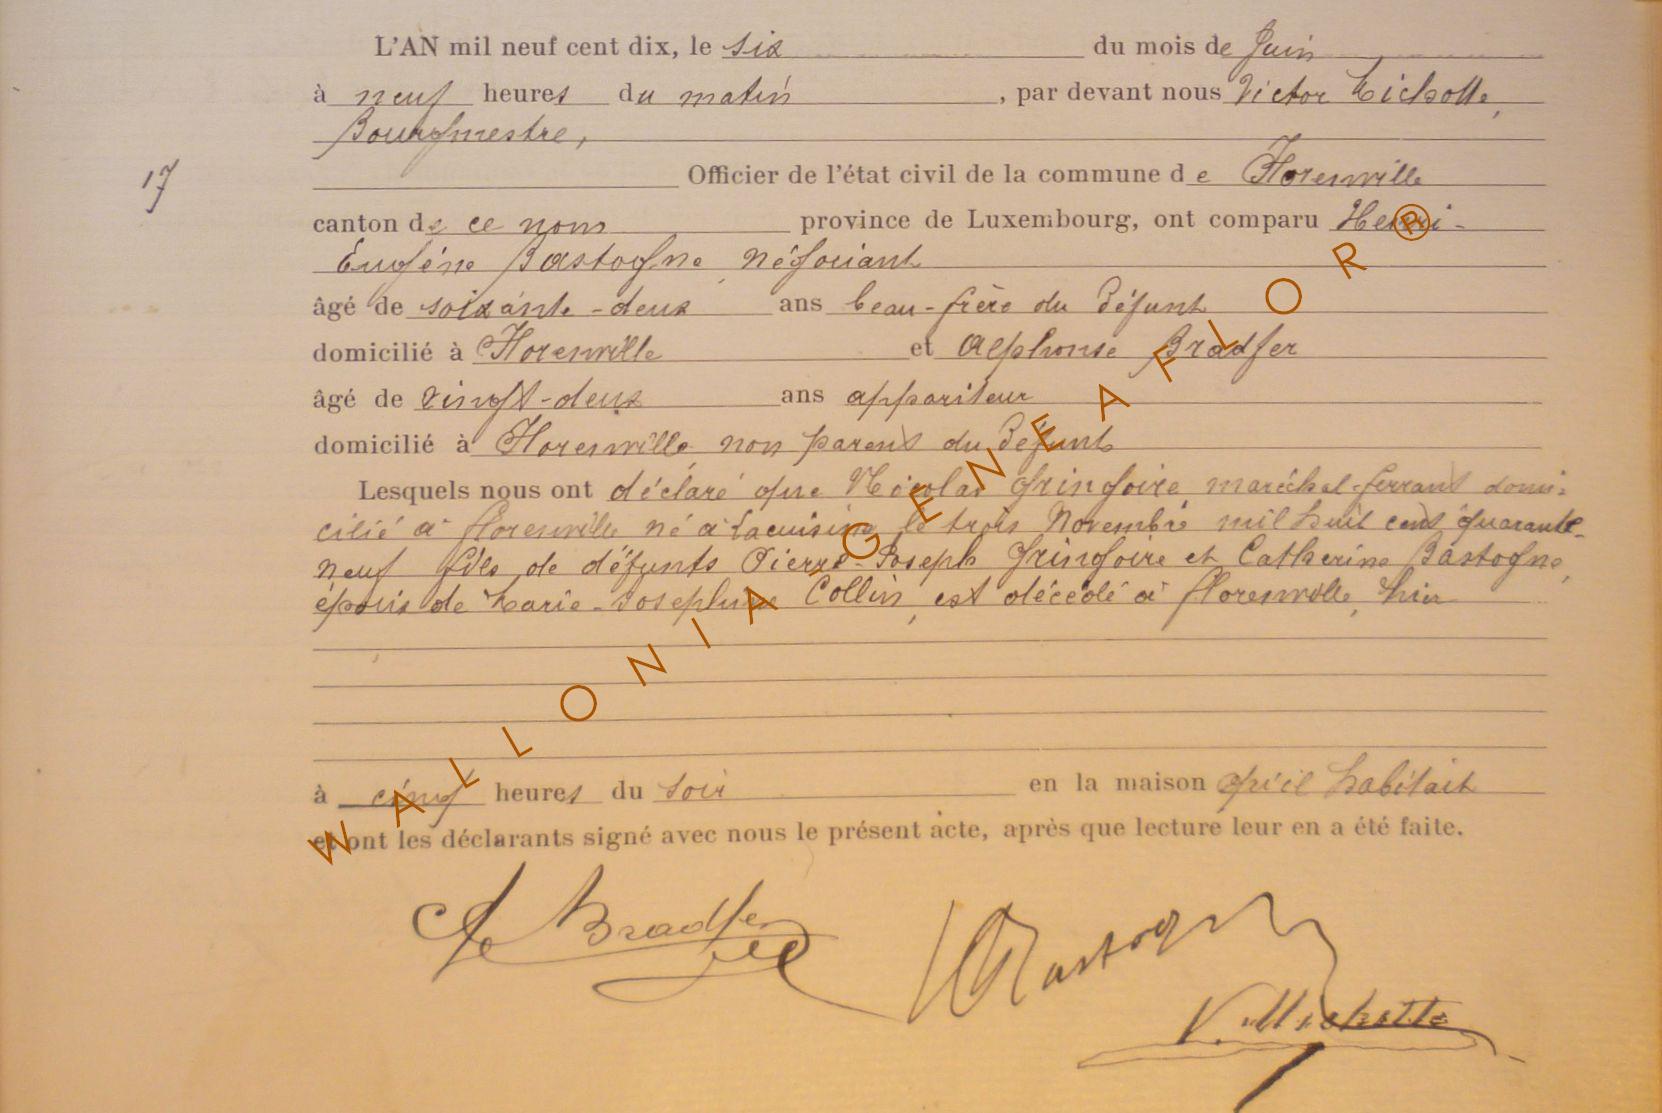 L'AN mil neuf cent dix, le six du mois de Juin
à neuf heures du matin, par devant nous Victor Michotte,
Bourgmestre,
17
Officier de l'état civil de la commune de Florenville
canton de ce nom province de Luxembourg, ont comparu Henri-
Eugène Bastogne, négociant
âgé de soixante-deux ans beau-frère du défunt
domicilié à Florenville et Alphonse Bradfer
âgé de vingt-deux ans appariteur
domicilié à Florenville non parent du défunt
Lesquels nous ont déclaré que Nicolas Gringoire, maréchal-ferrant domi-
cilié à Florenville né à Lacuisine le trois Novembre mil huit cent quarante-
neuf fils de défunts Pierre-Joseph Gringoire et Catherine Bastogne,
époux de Marie-Josephine Collin, est décédé à Florenville, hier
à cinq heures du soir en la maison qu'il habitait
et ont les déclarants signé avec nous le présent acte, après que lecture leur en a été faite.
Al Bradfer
H Bastogne
V. Michotte
WALLONIA GENEAFLOR ®